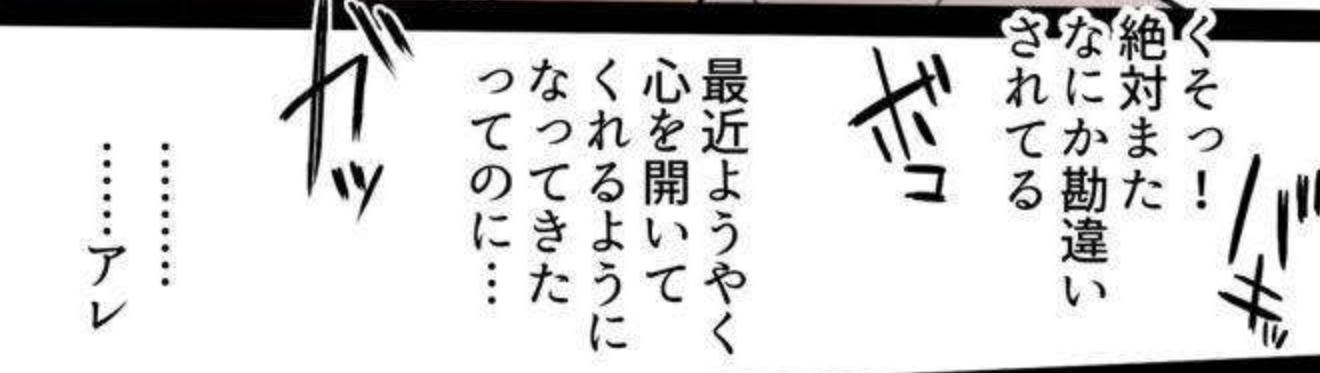 くそっ！
絶対また
なにか勘違い
されてる
最近ようやく
心を開いて
くれるように
なってきた
ってのに…
…………
………アレ